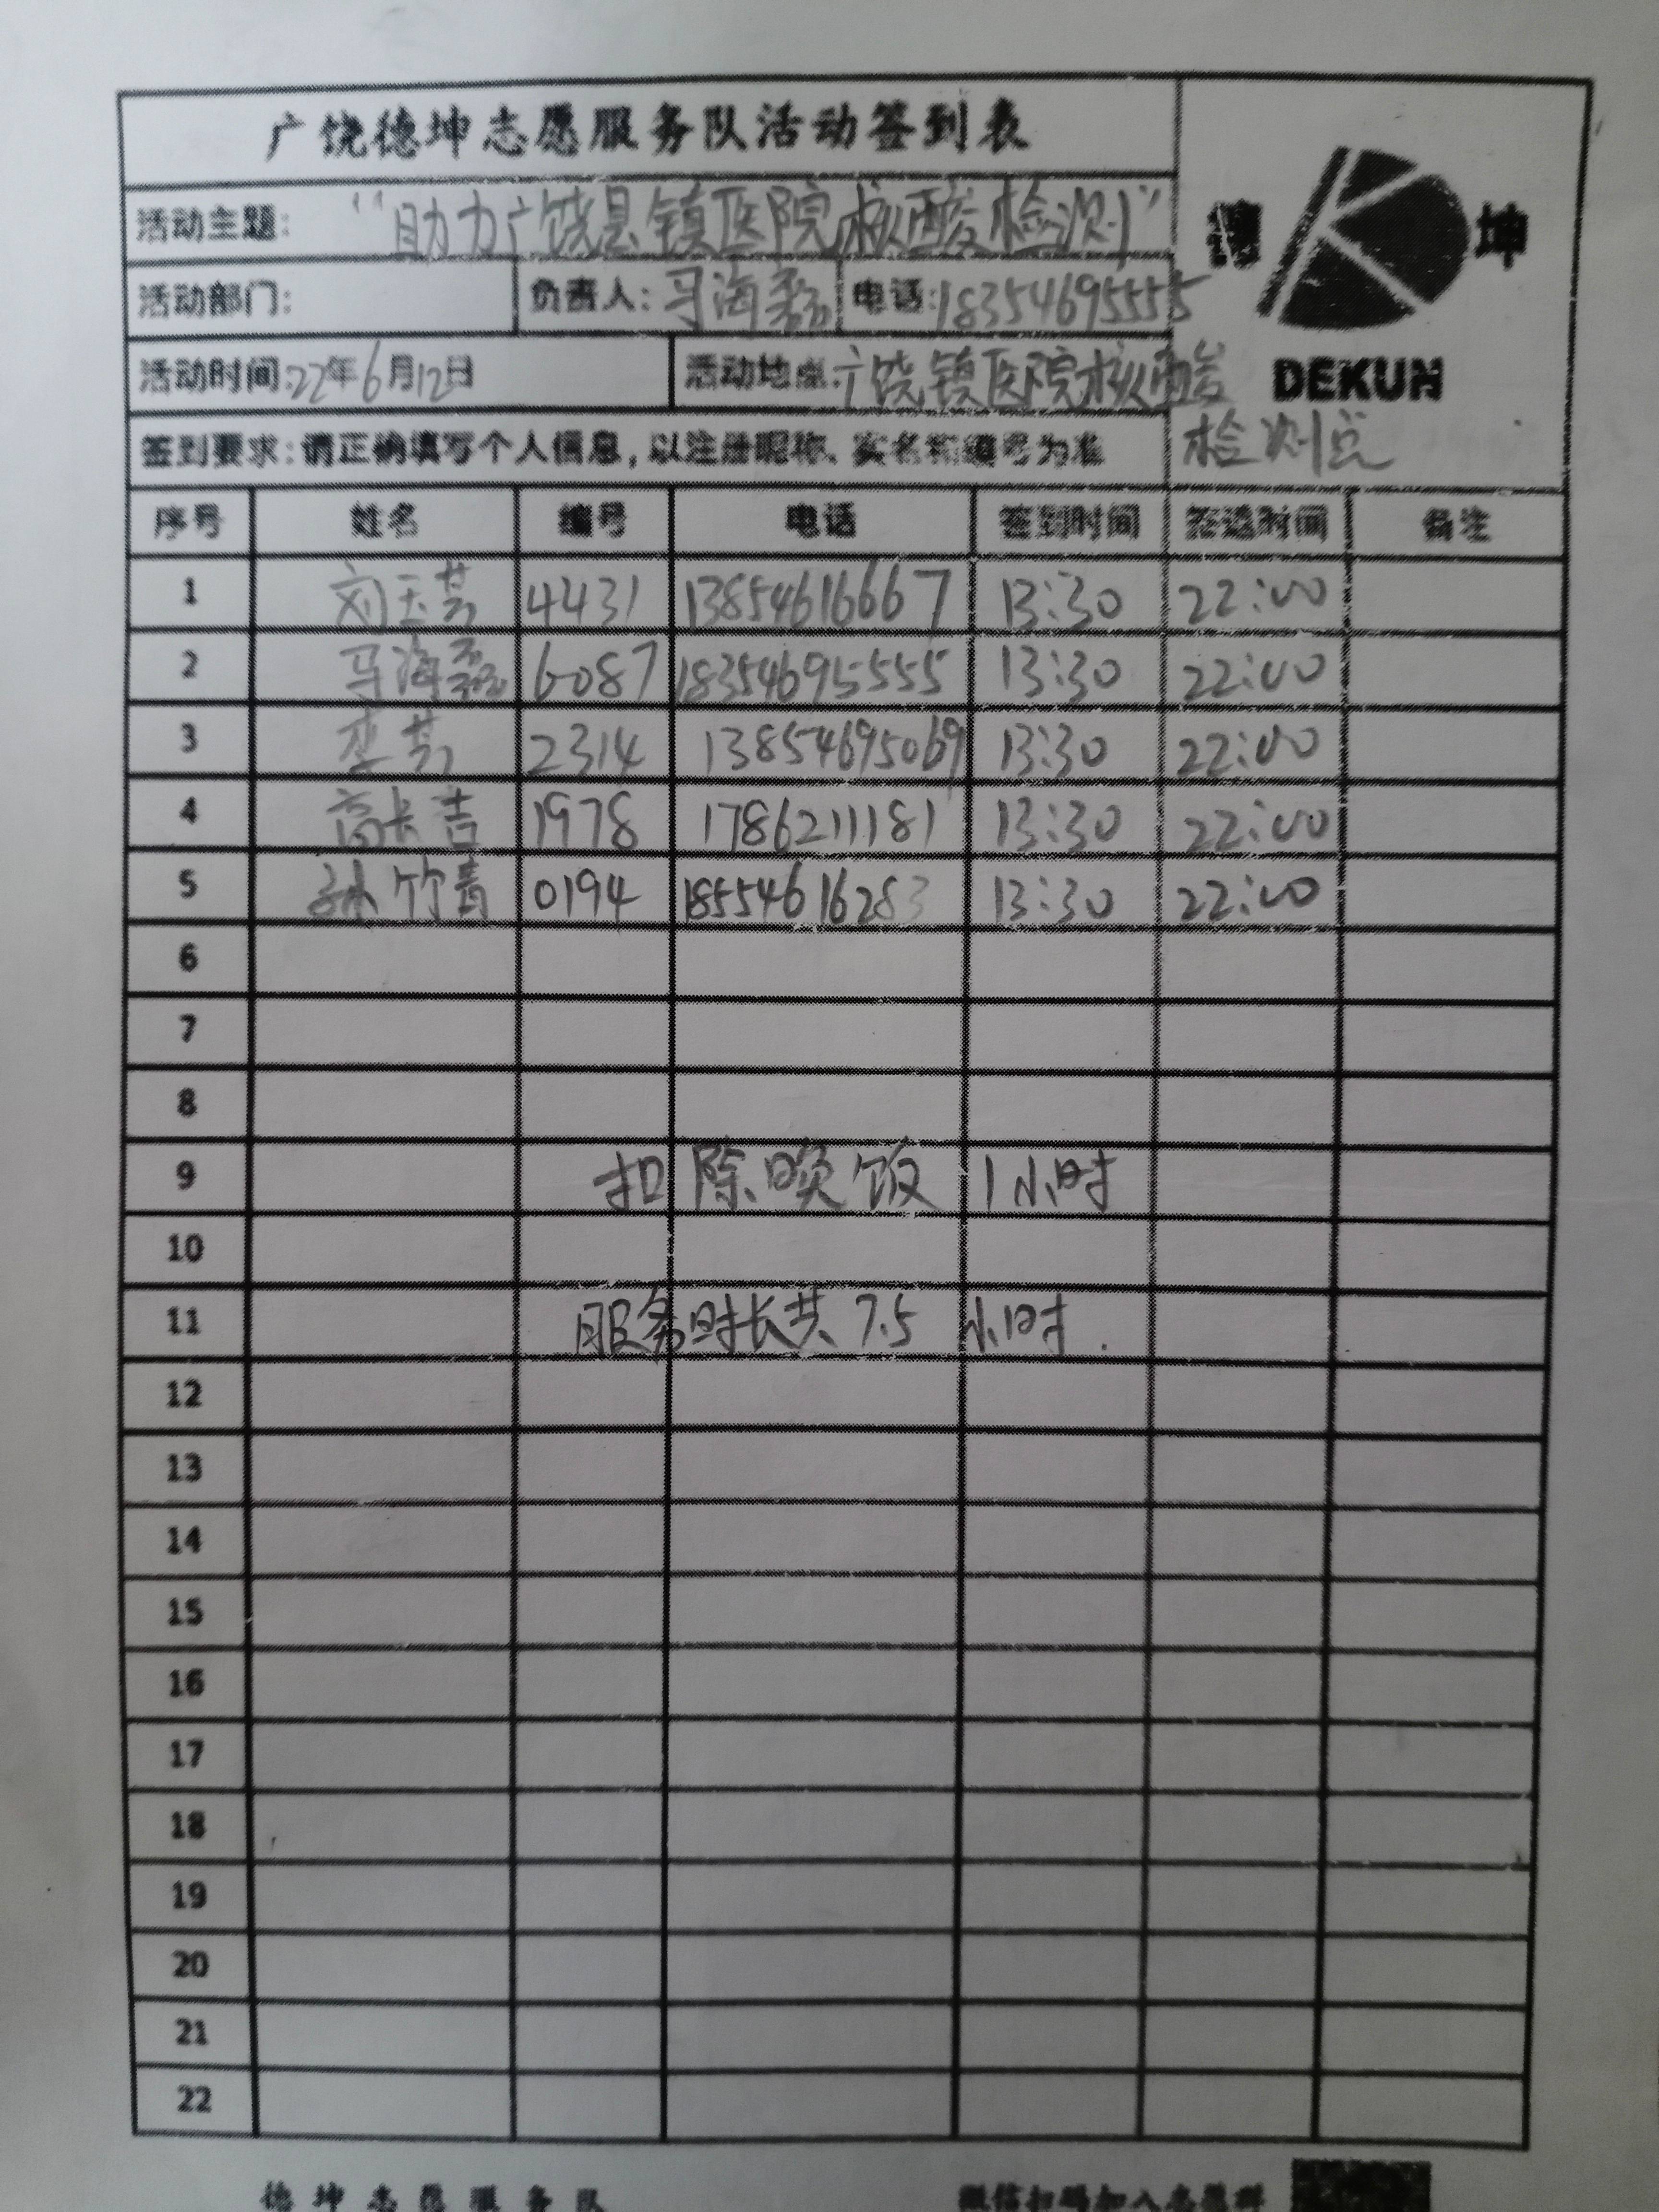 广饶德坤志愿服务队活动签到表
德 坤
DEKUN
活动主题: "助力广饶县镇医院核酸检测"
活动部门: 负责人: 马海磊 电话: 18354695555
活动时间: 22年6月12日 活动地点: 广饶镇医院核酸
检测点
签到要求: 请正确填写个人信息, 以注册昵称、实名和编号为准
序号 姓名 编号 电话 签到时间 签退时间 备注
1 刘玉芳 4431 13854616667 13:30 22:00
2 马海磊 6087 18354695555 13:30 22:00
3 李芳 2314 13854695069 13:30 22:00
4 高长吉 1978 1786211181 13:30 22:00
5 孙竹青 0194 18554616283 13:30 22:00
6
7
8
9 扣除唤饭 1小时
10
11 服务时长共 7.5 小时.
12
13
14
15
16
17
18
19
20
21
22
德坤志愿服务队 微信扫码加入志愿群